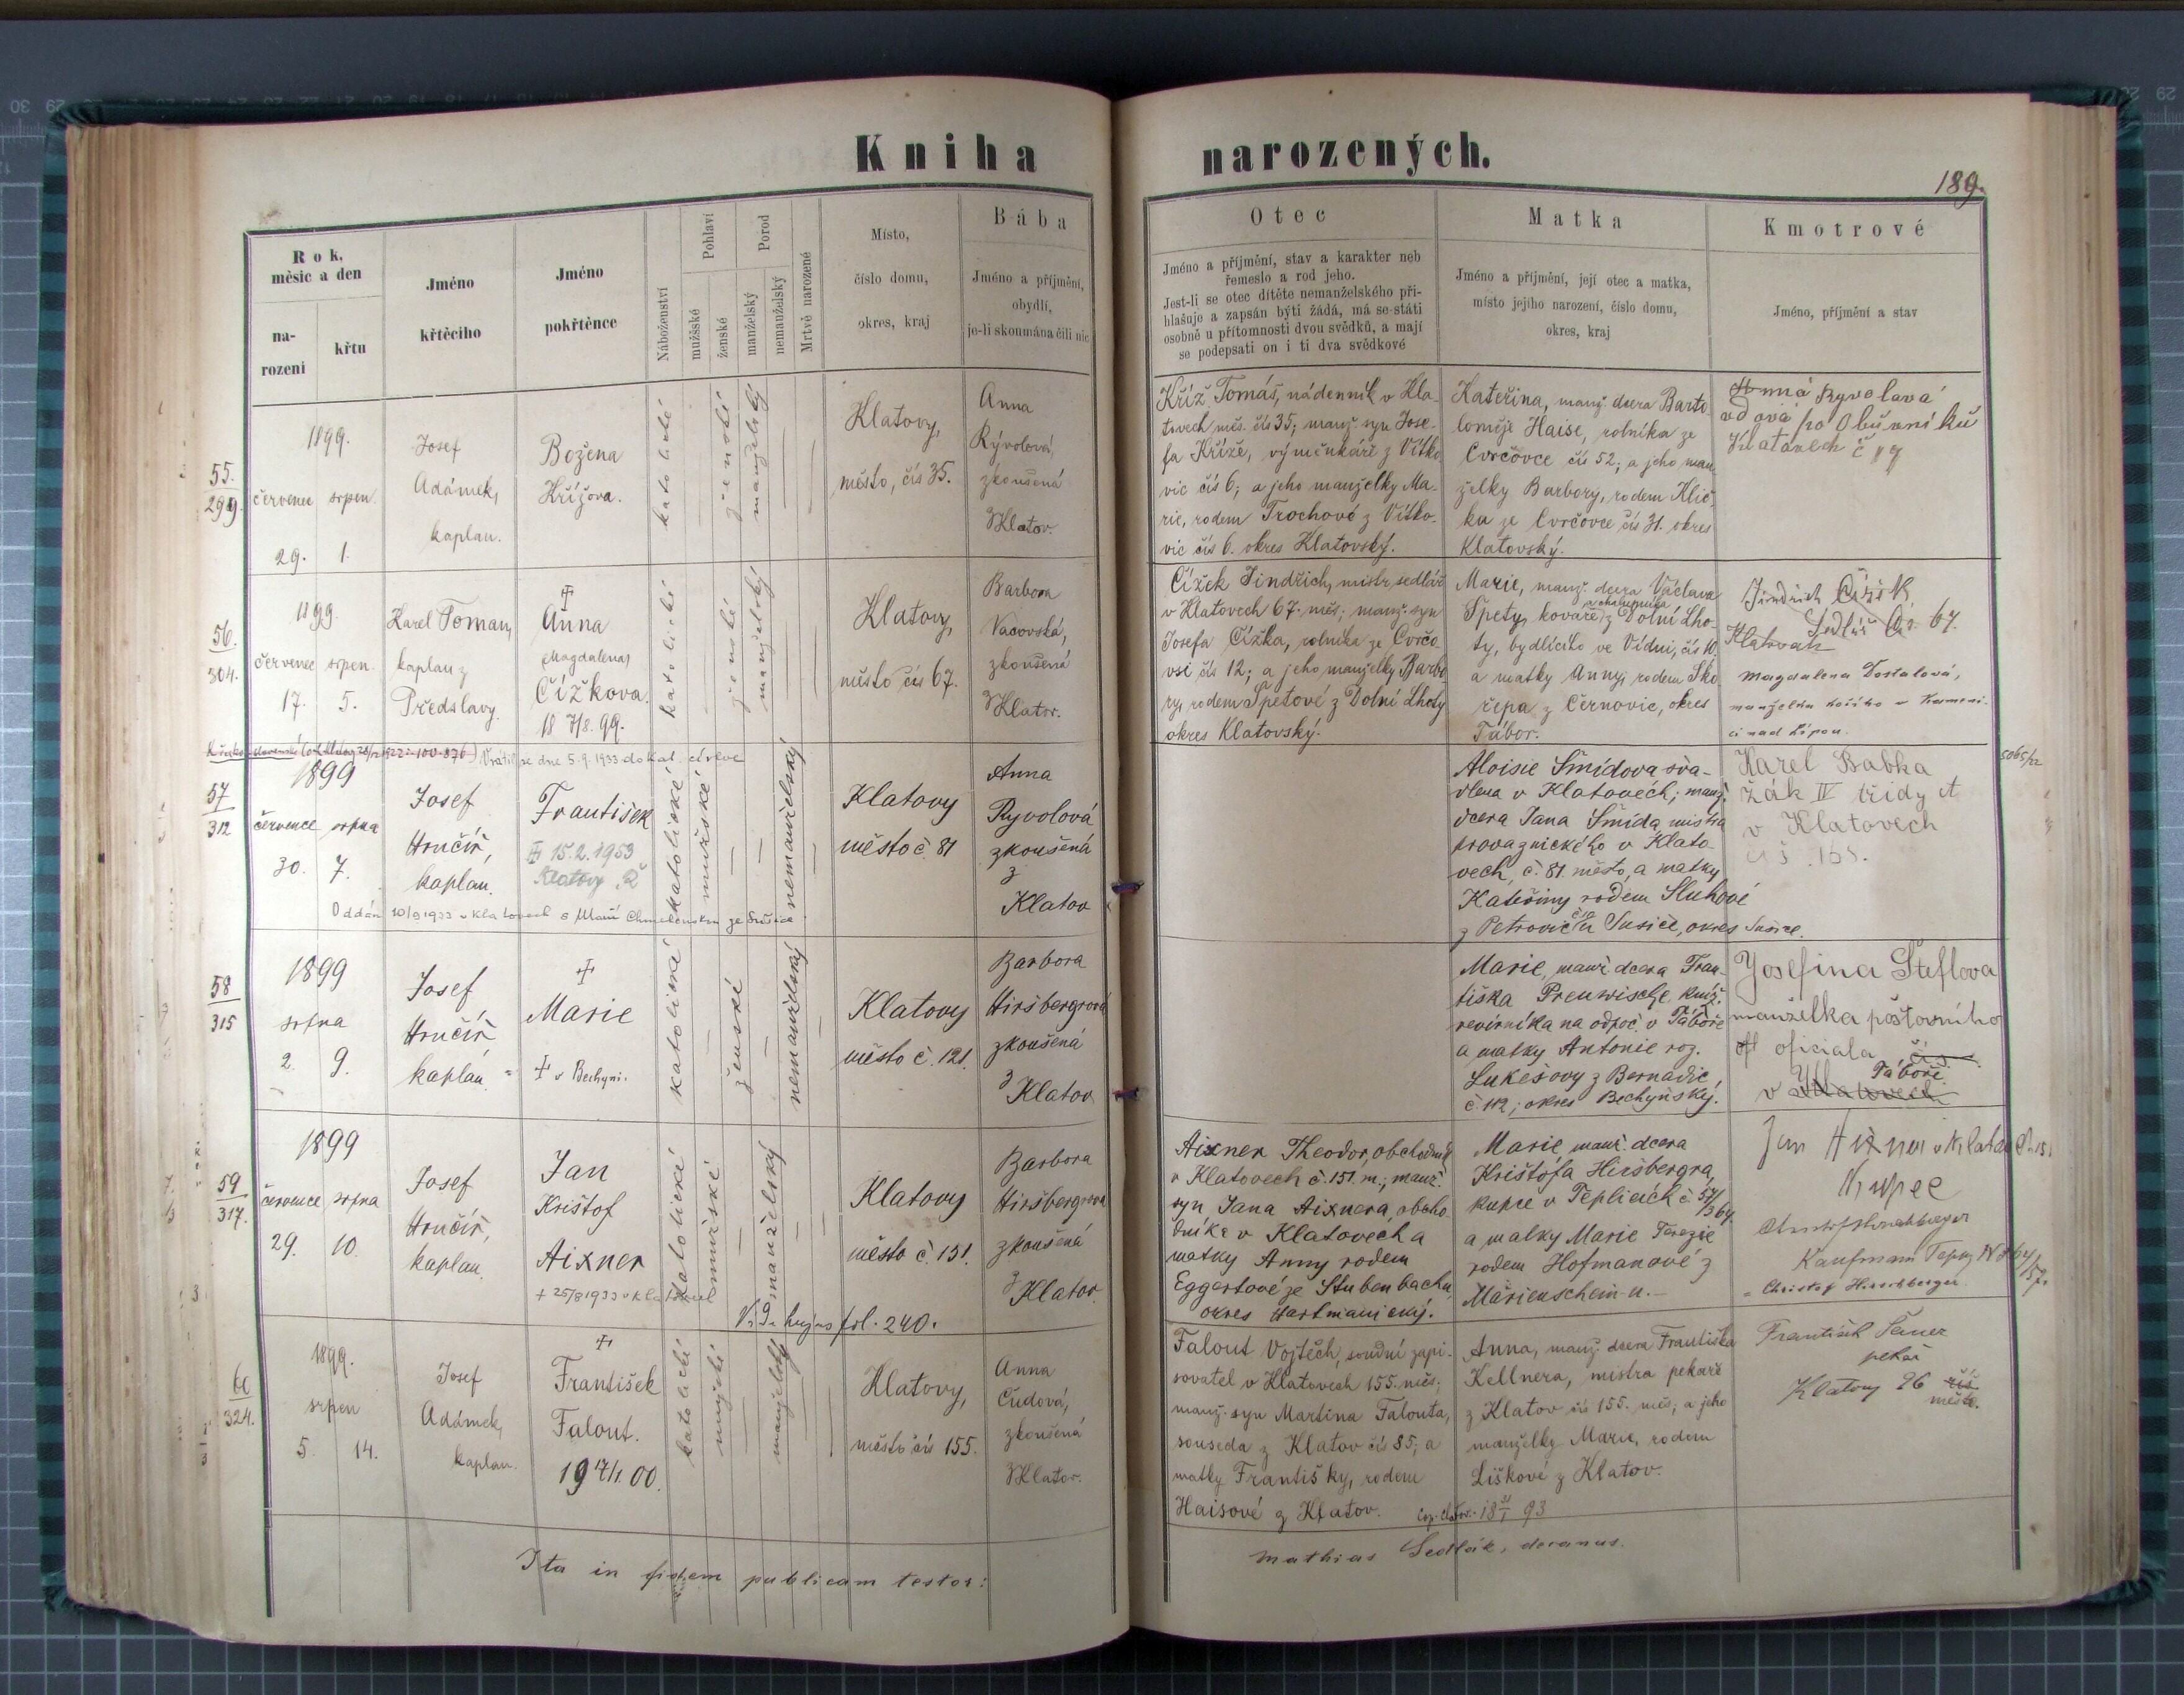 Kniha narozených.
189.
Rok, měsíc a den
na-
rozeni
křtu
Jméno
křtěcího
Jméno
pokřtěnce
Náboženství
Pohlaví
mužské
ženské
Porod
manželský
nemanželský
Mrtvě narozené
Místo,
číslo domu,
okres, kraj
Bába
Jméno a příjmění,
obydlí,
je-li skoumána čili nic
Otec
Jméno a příjmění, stav a karakter neb
řemeslo a rod jeho.
Jest-li se otec dítěte nemanželského při-
hlašuje a zapsán býti žádá, má se státi
osobně u přítomnosti dvou svědků, a mají
se podepsati on i ti dva svědkové
Matka
Jméno a příjmění, její otec a matka,
místo jejího narození, číslo domu,
okres, kraj
Kmotrové
Jméno, příjmění a stav
55.
299.
1899.
červenec srpen
29. 1.
Josef
Adámek,
kaplan.
Božena
Křížova.
katolické
ženské
manželský
Klatovy,
město, čís 35.
Anna
Rývolová,
zkoušená
z Klatov.
Kříž Tomáš, nádenník v Kla-
tovech měs. čís 35; manž. syn Jose-
fa Kříže, výměnkáře z Vítko-
vic čís 6; a jeho manželky Ma-
rie, rodem Trochové z Vítko-
vic čís 6. okres Klatovský.
Kateřina, manž. dcera Barto-
loměje Haise, rolníka ze
Cvrčovce čís 52; a jeho man-
želky Barbory, rodem Klič-
ka ze Cvrčovce čís 31. okres
Klatovský.
Anna Ryvolavá
vdová po Obuvníku
Klatovech č
56.
304.
1899.
červenec srpen.
17. 5.
Karel Toman,
kaplan z
Předslavy.
Anna
Magdalena
Čížkova.
18 7/8. 99.
katolické
ženské
manželský
Klatovy,
město čís 67.
Barbora
Vacovská,
zkoušená
z Klatov.
Čížek Jindřich, mistr sedlář
v Klatovech 67. měs; manž. syn
Josefa Čížka, rolníka ze Cvrčo-
vsi čís 12; a jeho manželky Barbo-
ry, rodem Špetové z Dolní Lhoty
okres Klatovský.
Marie, manž. dcera Václava
Špety, kováře z Dolní Lho-
ty, bydlícího ve Vídni, čís 10.
a matky Anny, rodem Sko-
řepa z Černovic, okres
Tábor.
Jindřich Čížek
Sedlář Čs. 67.
Klatovech
Magdalena Dostalová,
57
312
Vrátil se dne 5.9.1933 do kat. církve
1899
července srpna
30. 7.
Josef
Hručíř,
kaplan.
František
15.2.1953
Klatovy
Oddán 10/9 1933 v Klatovech s Marií Chmelenskou ze Sušice
katolické
mužské
nemanželský
Klatovy
město č. 81
Anna
Ryvolová
zkoušená
z
Klatov
Aloisie Šmídova sva-
dlena v Klatovech; manž.
dcera Jana Šmída, mistra
provaznického v Klato-
vech, č. 81. město, a matky
Kateřiny rodem Sluhové
z Petrovic u Sušice, okres Sušice.
Karel Babka
žák IV třídy
v Klatovech
čís. 165.
5065/22
58
315
1899
srpna
2. 9.
Josef
Hručíř
kaplan.
Marie
v Bechyni.
katolické
ženské
nemanželský
Klatovy
město č. 121.
Barbora
Hiršbergrová
zkoušená
z
Klatov
Marie, manž. dcera Fran-
tiška Preuwische kníž.
revírníka na odpoč. v Táboře
a matky Antonie roz.
Lukešovy z Bernadic
č. 112; okres Bechyňský.
Josefina Šteflova
manželka poštovního
oficiala
v Táboře
59
317.
1899
července srpna
29. 10.
Josef
Hručíř,
kaplan.
Jan
Krištof
Aixner
+ 25/8 1933 v Klatovech
katolické
mužské
manželský
Klatovy
město č. 151.
Barbora
Hiršbergrova
zkoušená
z Klatov.
Vide hujus fol. 240.
Aixner Theodor, obchodník
v Klatovech č. 151. m.; manž.
syn Jana Aixnera, obcho-
dníka v Klatovech a
matky Anny rodem
Eggertové ze Stubenbachu,
okres Hartmanický.
Marie manž. dcera
Krištofa Hiršbergra,
kupce v Teplicích č.
a matky Marie Terezie
rodem Hofmanové z
Marienschein-u.
Jan Aixner v Klatov
Kupec
Kaufmann
Christof Hirschberger.
60
324.
1899.
srpen
5. 14.
Josef
Adámek,
kaplan.
František
Falout.
19 17/1. 00.
katolické
mužské
manželský
Klatovy,
město čís 155.
Anna
Čudová,
zkoušená
z Klatov.
Falout Vojtěch, soudní zapi-
sovatel v Klatovech 155. měs;
manž. syn Martina Falouta,
souseda z Klatov čís 85; a
matky Františky, rodem
Haisové z Klatov.
Anna, manž. dcera Františka
Kellnera, mistra pekaře
z Klatov čís 155. měs; a jeho
manželky Marie, rodem
Liškové z Klatov.
František
pekař
Klatovy 96
město.
Ita in fidem publicam testor:
Mathias Sedlák, decanus.